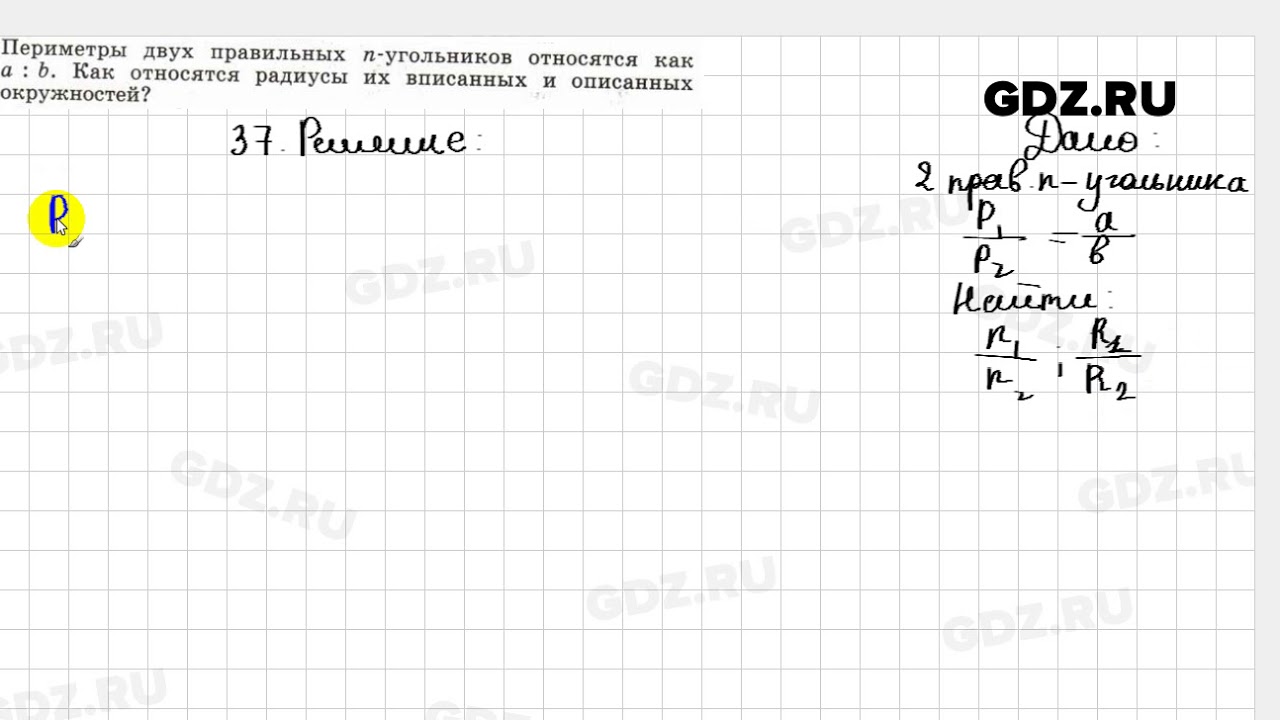 Периметры двух правильных n-угольников относятся как
a : b. Как относятся радиусы их вписанных и описанных
окружностей?
GDZ.RU
37. Решение:
Дано:
2 прав. n-угольника
P₁/P₂ = a/b
Найти:
r₁/r₂ ; R₁/R₂
R
GDZ.RU
GDZ.RU
GDZ.RU
GDZ.RU
GDZ.RU
GDZ.RU
GDZ.RU
GDZ.RU
GDZ.RU
GDZ.RU
GDZ.RU